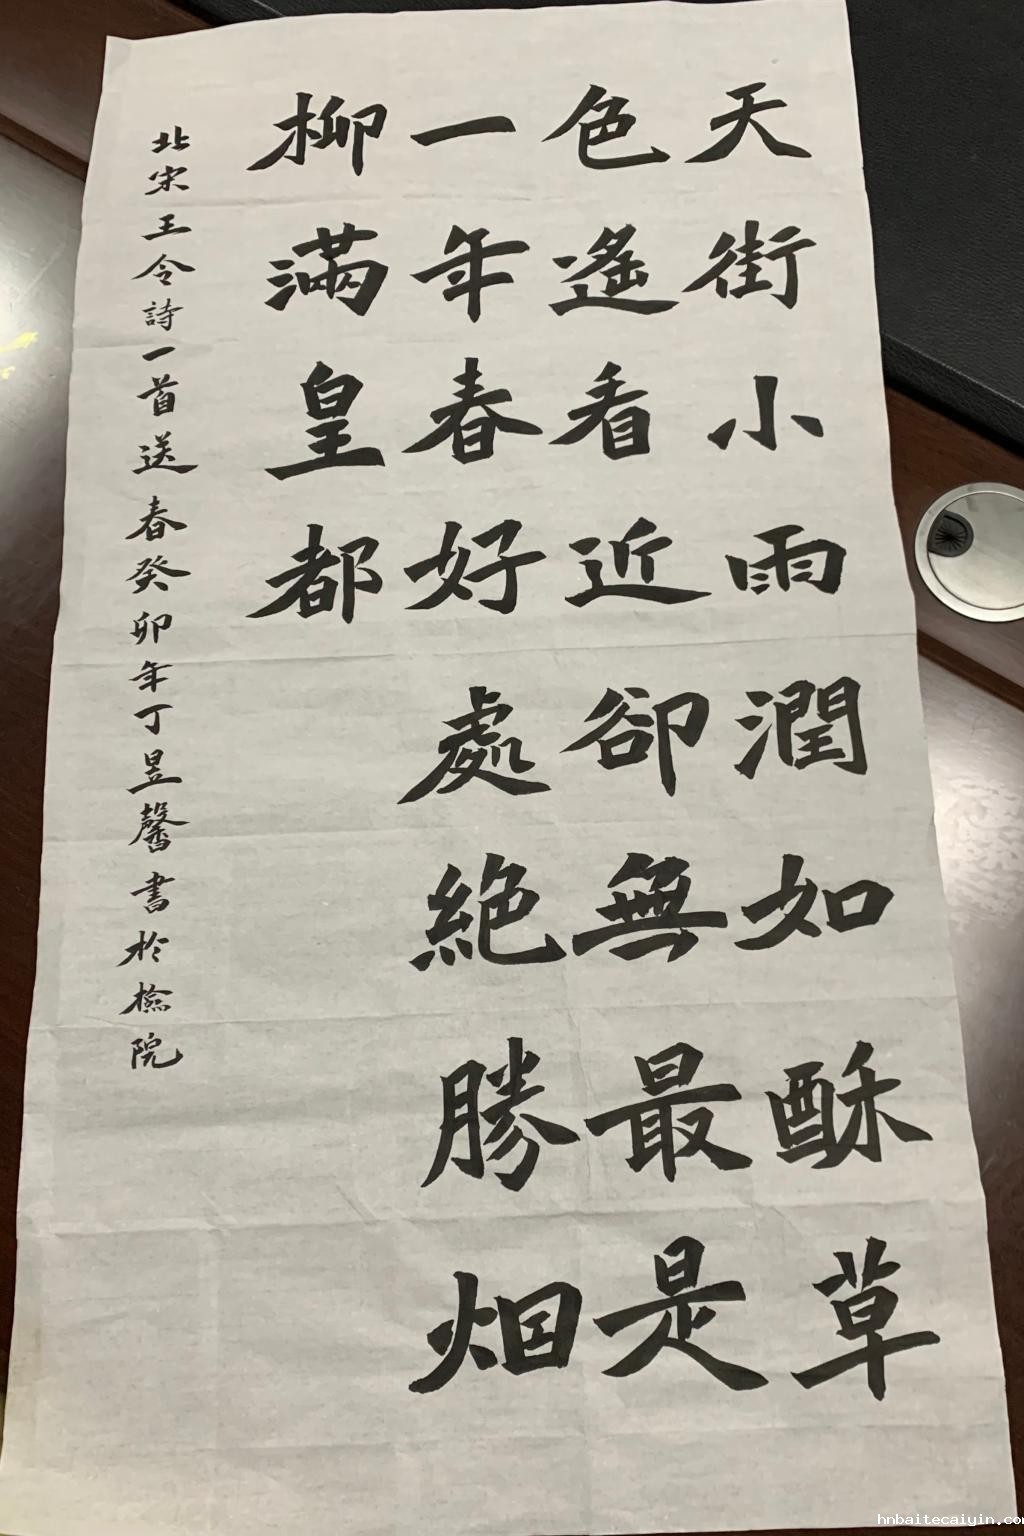 天街小雨潤如酥草
色遙看近卻無最是
一年春好處絶勝烟
柳滿皇都
北宋王令詩一首送春癸卯年丁昱馨書於檢院
hnbaitecaiyin.com